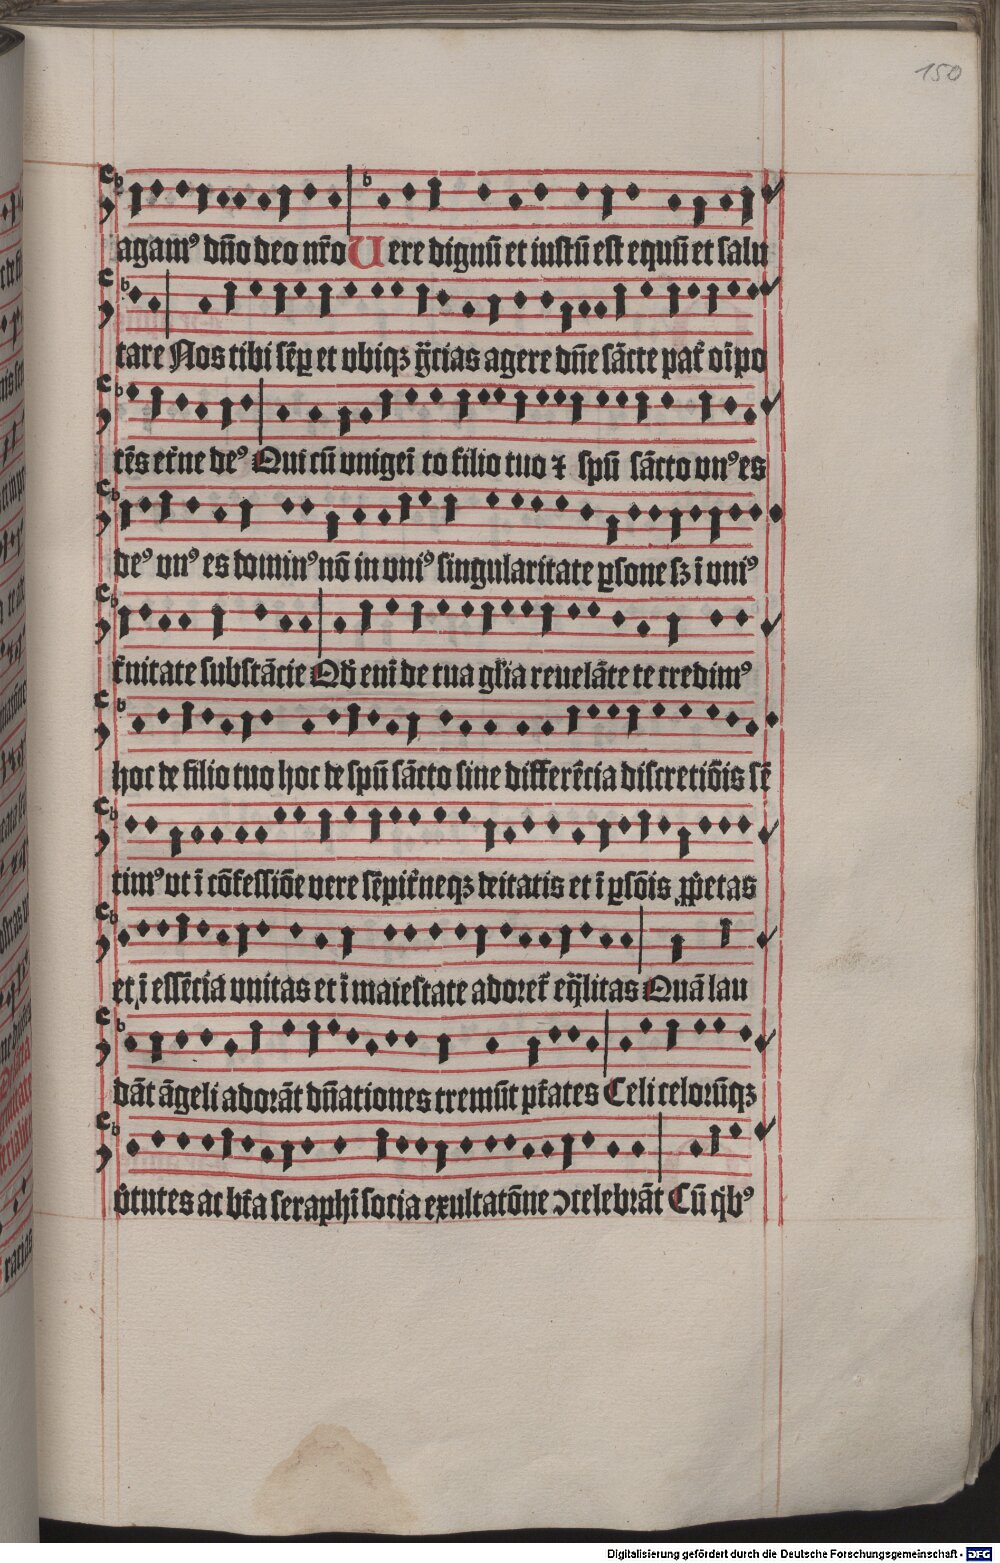 150
agamꝰ dño deo nr̄o Uere dignū et iustū est equū et salu
tare Nos tibi sēp et vbiqꝫ gͣcias agere dn̄e sācte patr̄ oīpo
tēs et̄ne deꝰ Qui cū vnigeī to filio tuo ⁊ spū sācto vnꝰ es
deꝰ vnꝰ es dominꝰ nō in vniꝰ singularitate ꝑsone sꝫ ī vniꝰ
t̄nitate substācie Qd̄ enī de tua gl̄ia reuelāte te credimꝰ
hoc de filio tuo hoc de spū sācto sine differēcia discretiōis sē
timꝰ vt ī cōfessiōe vere sēpit̄neqꝫ deitatis et ī ꝑsōis ꝓpͥetas
et ī essēcia vnitas et ī maiestate adoret̄ eqͣlitas Quā lau
dāt āgeli adorāt dn̄ationes tremūt pt̄ates Celi celorūqꝫ
v̄tutes ac bt̄a seraphī socia exultatōne ↄcelebrāt Cū qͥbꝰ
Digitalisierung gefördert durch die Deutsche Forschungsgemeinschaft - DFG